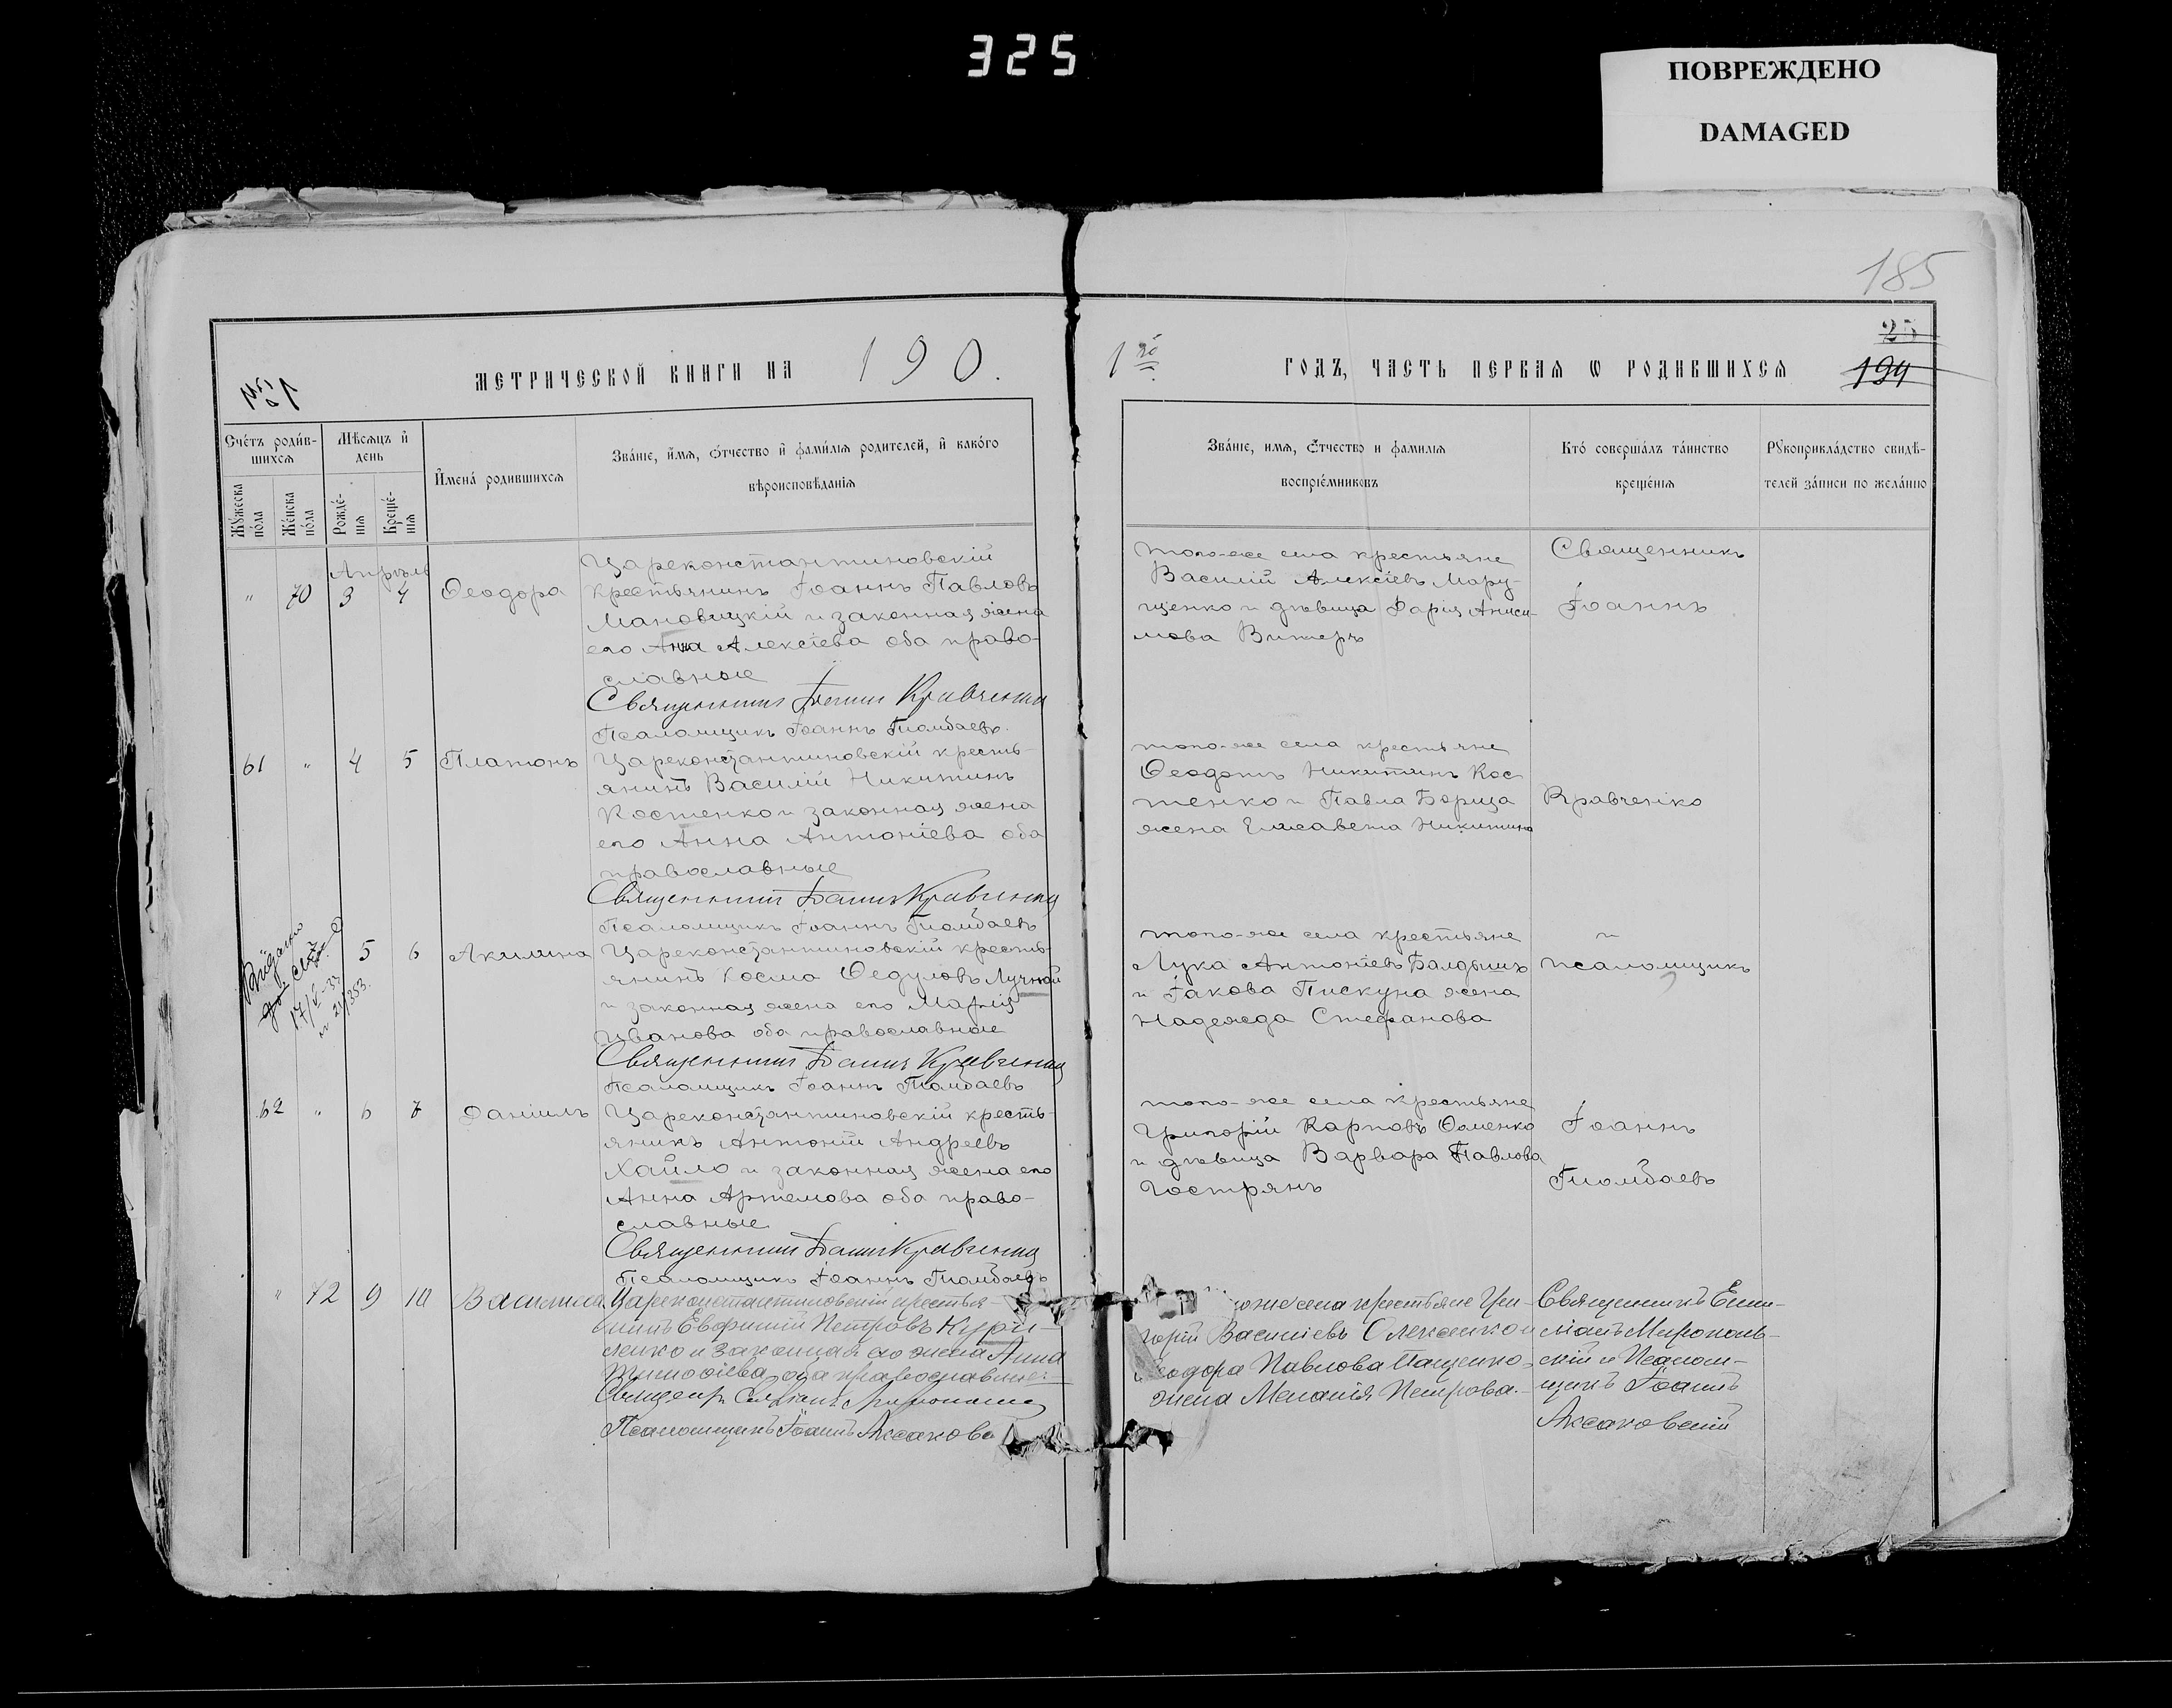 325
ПОВРЕЖДЕНО
DAMAGED
185
25
194
МЕТРИЧЕСКОЙ КНИГИ НА 190
1го
ГОДЪ, ЧАСТЬ ПЕРВАЯ Ѡ РОДИВШИХСЯ
Счетъ родив-
шихся
Мѣсяцъ и
день
Имена родившихся
Званіе, имя, отчество и фамилія родителей, и какого
вѣроисповѣданія
Мужеска
пола
Женска
пола
Рожде-
нія
Креще-
нія
Званіе, имя, отчество и фамилія
воспріемниковъ
Кто совершалъ таинство
крещенія
Рукоприкладство свидѣ-
телей записи по желанію
Апрѣль
" 70 3 4 Ѳеодора
Цареконстантиновскій
крестьянинъ Іоаннъ Павловъ
Мановицкій и законная жена
его Анна Алексіева оба право-
славные
Священникъ Іоаннъ Кравченко
Псаломщикъ Іоаннъ Гіомбаевъ
того-же села крестьяне
Василій Алексіевъ Мару-
щенко и дѣвица Дарія Аниси-
мова Витеръ
Священникъ
Іоаннъ
61 " 4 5 Платонъ
Цареконстантиновскій кресть-
янинъ Василій Никитинъ
Костенко и законная жена
его Анна Антоніева оба
православные
Священникъ Іоаннъ Кравченко
Псаломщикъ Іоаннъ Гіомбаевъ
того-же села крестьяне
Ѳеодотъ Никитинъ Кос-
тенко и Павла Борща
жена Елисавета Никитина
Кравченко
5 6 Акилина
Цареконстантиновскій кресть-
янинъ Косма Ѳедуловъ Лучной
и законная жена его Марія
Иванова оба православные
Священникъ Іоаннъ Кравченко
Псаломщикъ Іоаннъ Гіомбаевъ
того-же села крестьяне
Лука Антоніевъ Балдышъ
и Іакова Пискуна жена
Надежда Стефанова
и
псаломщикъ
62 " 6 7 Даніилъ
Цареконстантиновскій кресть-
янинъ Антоній Андреевъ
Хайло и законная жена его
Анна Артемова оба право-
славные
Священникъ Іоаннъ Кравченко
Псаломщикъ Іоаннъ Гіомбаевъ
того-же села крестьяне
Григорій Карповъ Ѳоменко
и дѣвица Варвара Павлова
Гострянъ
Іоаннъ
Гіомбаевъ
" 72 9 10 Василиса
Цареконстантиновскій крестья-
нинъ Евфимій Петровъ Кури-
ленко и законная его жена Анна
Тимофіева, оба православные
Псаломщикъ Іоаннъ Аксаковс
оже села крестьяне Гри-
горій Василіевъ Олексенко и
еодора Павлова Пащенко
жена Меланія Петрова.
Священникъ Еми-
ліанъ Мирополь-
скій и Псалом-
щикъ Іоаннъ
Аксаковскій